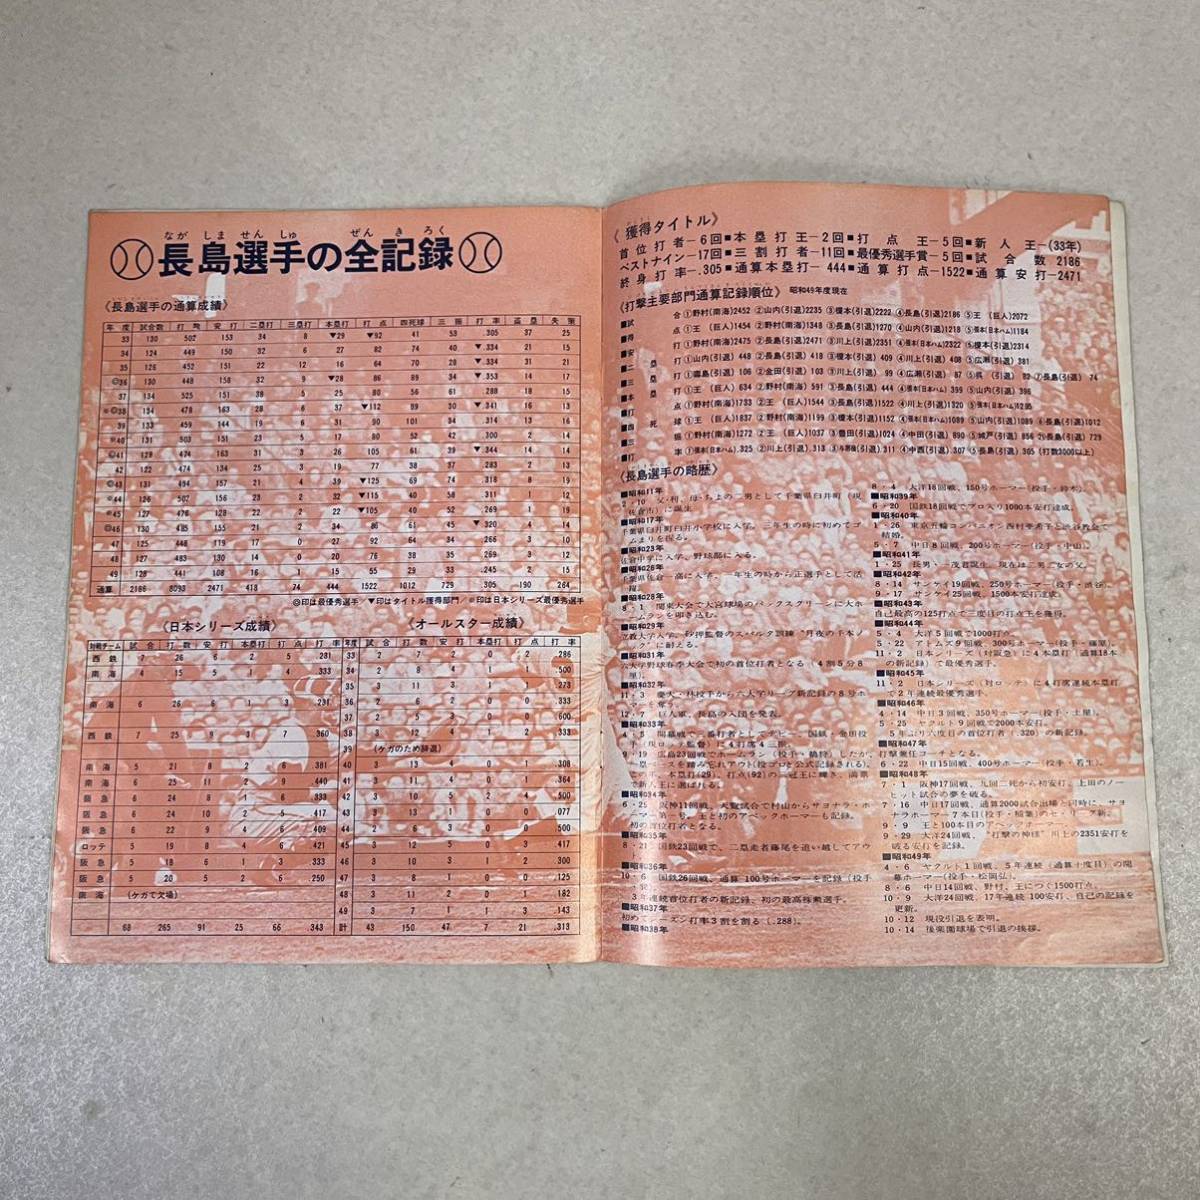 なが しま せん しゅ ぜん き ろく
長島選手の全記録
《長島選手の通算成績》
年度 試合数 打数 安打 二塁打 三塁打 本塁打 打点 四死球 三振 打率 盗塁 失策
33 130 502 153 34 8 ▼29 ▼92 41 53 .305 37 25
34 124 449 150 32 6 27 82 74 40 ▼.334 21 15
35 126 452 151 22 12 16 64 70 28 ▼.334 31 21
◎36 130 448 158 32 9 ▼28 86 89 34 ▼.353 14 17
37 134 525 151 38 5 25 80 56 61 .288 18 15
134 478 163 28 6 37 ▼112 89 30 ▼.341 16 13
39 133 459 31 90 101 34 .314 13 16
131 503 151 23 5 17 80 52 42 .300 2 14
128 474 163 31 3 26 105 61 39 ▼.344 14 14
42 122 474 134 25 3 19 77 38 37 .283 2 13
131 494 157 21 4 39 ▼125 69 74 .318 8
126 502 156 23 2 32 ▼115 40 58 .311 1 12
127 476 128 22 2 22 ▼105 40 52 .269 1 19
130 485 155 21 2 34 86 61 45 ▼.320 4 14
47 125 448 119 17 0 27 92 64 34 .266 3 10
48 127 483 130 14 0 20 76 38 35 .269 3 12
49 128 442 108 16 1 15 55 29 33 2 15
通算 2186 8094 2471 418 74 444 1522 1012 729 .305 190 264
◎印は最優秀選手 ▼印はタイトル獲得部門 ※印は日本シリーズ最優秀選手
《日本シリーズ成績》
対戦チーム 試合 打数 安打 本塁打 打点 打率
西鉄 7 26 6 2 5 .231
南海 4 15 5 1 4 .333
南海 6 26 6 1 3 .231
西鉄 7 25 9 3 7 .360
南海 .381
南海 6 25 11 2 9 .440
阪急 6 24 8 1 6 .333
阪急 6 24 2 7 .417
阪急 6 22 9 4 6 .409
ロッテ 5 19 8 4 6 .421
阪急 5 18 6 1 3 .333
阪急 5 20 5 2 6 .250
南海 (ケガで欠場)
68 265 91 25 66 .343
《オールスター成績》
年度 試合 打数 安打 本塁打 打点 打率
33 2 7 2 0 2 .286
34 2 1 1 .500
35 3 11 3 1 1 .273
36 2 6 2 0 0 .333
37 2 5 3 0 0 .600
38 3 12 4 1 2 .333
39 (ケガのため辞退)
40 3 13 4 0 .308
41 3 11 4 0 1 .364
42 3 10 5 0 2 .500
43 3 13 1 0 0 .077
44 3 10 5 0 2 .500
45 3 12 5 1 3 .417
46 3 10 3 0 1 .300
47 3 8 1 0 0 .125
48 3 11 2 0 1 .182
49 3 7 1 1 3 .143
計 43 150 47 7 21 .313
《獲得タイトル》
首位打者—6回■本塁打王—2回■打点王—5回■新人王—(33年)
ベストナイン—17回■三割打者—11回■最優秀選手賞—5回■試合数 2186
終身打率—.305■通算本塁打—444■通算打点—1522■通算安打—2471
《打撃主要部門通算記録順位》 昭和49年度現在
■試合①野村(南海)2452 ②山内(引退)2235 ③榎本(引退)2222 ④長島(引退)2186 ⑤王(巨人)2072
■得点①王(巨人)1454 ②野村(南海)1348 ③長島(引退)1270 ④山内(引退)1218 ⑤張本(日本ハム)1184
■安打①野村(南海)2475 ②長島(引退)2471 ③川上(引退)2351 ④張本(日本ハム)2322 ⑤榎本(引退)2314
■二塁打①山内(引退)448 ②長島(引退)418 ③榎本(引退)409 ④川上(引退)408 ⑤広瀬(引退)381
■三塁打 106 ②金田(引退)103 ③川上(引退)99 ④広瀬(引退)87 ⑤呉(引退)83 ⑦長島(引退)74
■本塁打①王(巨人)634 ②野村(南海)591 ③長島(引退)444 ④張本(日本ハム)399 ⑤山内(引退)396
■打点①野村(南海)1733 ②王(巨人)1544 ③長島(引退)1522 ④川上(引退)1320 ⑤張本(日本ハム)1205
■四死球①王(巨人)1837 ②野村(南海)1199 ③榎本(引退)1152 ④山内(引退)1089 ⑤山内(引退)1089 ⑥長島(引退)1012
■三振①野村(南海)1272 ②王(巨人)1037 ③豊田(引退)1024 ④中田(引退)890 ⑤城戸(引退)856 長島(引退)729
■打率①張本(日本ハム).325 ②川上(引退).313 ③与那嶺(引退).311 ④中西(引退).307 ⑤長島(引退).305 (打数3000以上)
《長島選手の略歴》
■昭和11年
2・10 父・利、母・ちよの二男として千葉県臼井町(現佐倉市)に誕生
■昭和17年
千葉県臼井町臼井小学校に入学。三年生の時に初めてゴムまりを握る。
■昭和23年
佐倉中学に入学、野球部に入る。
■昭和26年
千葉県佐倉一高に入学。一年生の時から正選手として活躍。
■昭和28年
8・1 関東大会で大宮球場のバックスクリーンに大ホームランを叩き込む。
■昭和29年
立教大学入学。砂押監督のスパルタ訓練“月夜の千本ノック”に耐える。
■昭和31年
六大学野球春季大会で初の首位打者となる(4割5分8里)。
■昭和32年
11・3 慶大・林投手から六大学リーグ新記録の8号ホーマーを奪う。
12・7 巨人軍、長島の入団を発表。
■昭和33年
4・5 開幕戦で三番打者としてデビュー。国鉄・金田投手(現ロッテ監督)に4打席4三振。
9・19 広島23回戦でホームラン(投手・鵜狩)したが、一塁ベースを踏み忘れアウト(投ゴロと公式記録される)。この年、本塁打(29)、打点(92)の二冠王に輝き、満票で新人王に選ばれる。
■昭和34年
6・25 阪神11回戦、天覧試合で村山からサヨナラ・ホーマー第一号。王と初のアベックホーマーも記録。初の首位打者となる。
■昭和35年
8・21 国鉄23回戦で、二塁走者藤尾を追い越してアウト。
■昭和36年
10・6 国鉄26回戦、通算100号ホーマーを記録(投手・
3年連続首位打者の新記録、初の最高殊勲選手。
■昭和37年
初めてシーズン打率3割を割る(.288)。
■昭和38年
8・4 大洋18回戦、150号ホーマー(投手・鈴木)。
■昭和39年
6・20 国鉄18回戦でプロ入り1000本安打達成。
■昭和40年
1・26 東京五輪コンパニオン西村亜希子と渋谷教会で結婚。
5・7 中日8回戦、200号ホーマー(投手・中山)。
■昭和41年
1・25 長男・一茂君誕生。現在は二男二女の父。
■昭和42年
8・14 サンケイ19回戦、250号ホーマー(投手・渋谷)。
9・17 サンケイ25回戦、1500本安打達成。
■昭和43年
自己最高の125打点で三度目の打点王を獲得。
■昭和44年
5・4 大洋5回戦で1000打点。
5・22 アトムズ9回戦、300号ホーマー(投手・
11・2 日本シリーズ(対阪急)に4本塁打(通算18本の新記録)で最優秀選手。
■昭和45年
11・2 日本シリーズ(対ロッテ)に4打席連続本塁打で2年連続最優秀選手。
■昭和46年
4・14 中日3回戦、350号ホーマー(投手・土屋)。
5・25 ヤクルト9回戦で2000本安打。
5年ぶり六度目の首位打者(.320)の新記録。
■昭和47年
打撃兼任コーチとなる。
6・22 中日15回戦、400号ホーマー(投手・若生)。
■昭和48年
7・1 阪神17回戦、九回二死から初安打、上田のノーヒット試合の夢を破る。
7・16 中日17回戦、通算2000試合出場と同時に、サヨナラホーマー7本目(投手・稲葉)のセ・リーグ新。
9・9 王と100本目のアベックホーマー。
9・29 大洋24回戦、“打撃の神様”川上の2351安打を破る安打を記録。
■昭和49年
4・6 ヤクルト1回戦、5年連続(通算十度目)の開幕ホーマー(投手・松岡弘)。
8・6 中日14回戦、野村、王につぐ1500打点。
10・9 大洋24回戦、17年連続100安打、自己の記録を更新。
10・12 現役引退を表明。
10・14 後楽園球場で引退の挨拶。